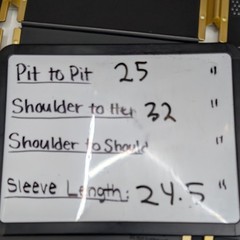 Pit to Pit 25 "
Shoulder to Hem 32 "
Shoulder to Should "
Sleeve Length: 24.5 "